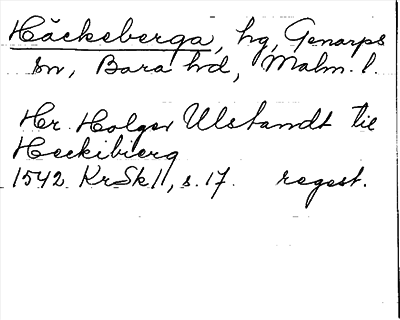 Häckeberga, hg, Genarps
sn, Bara hd, Malm. l.
Hr. Holger Ulstandt till
Heckibierg
1542 KrSk 11, s. 17. regest.